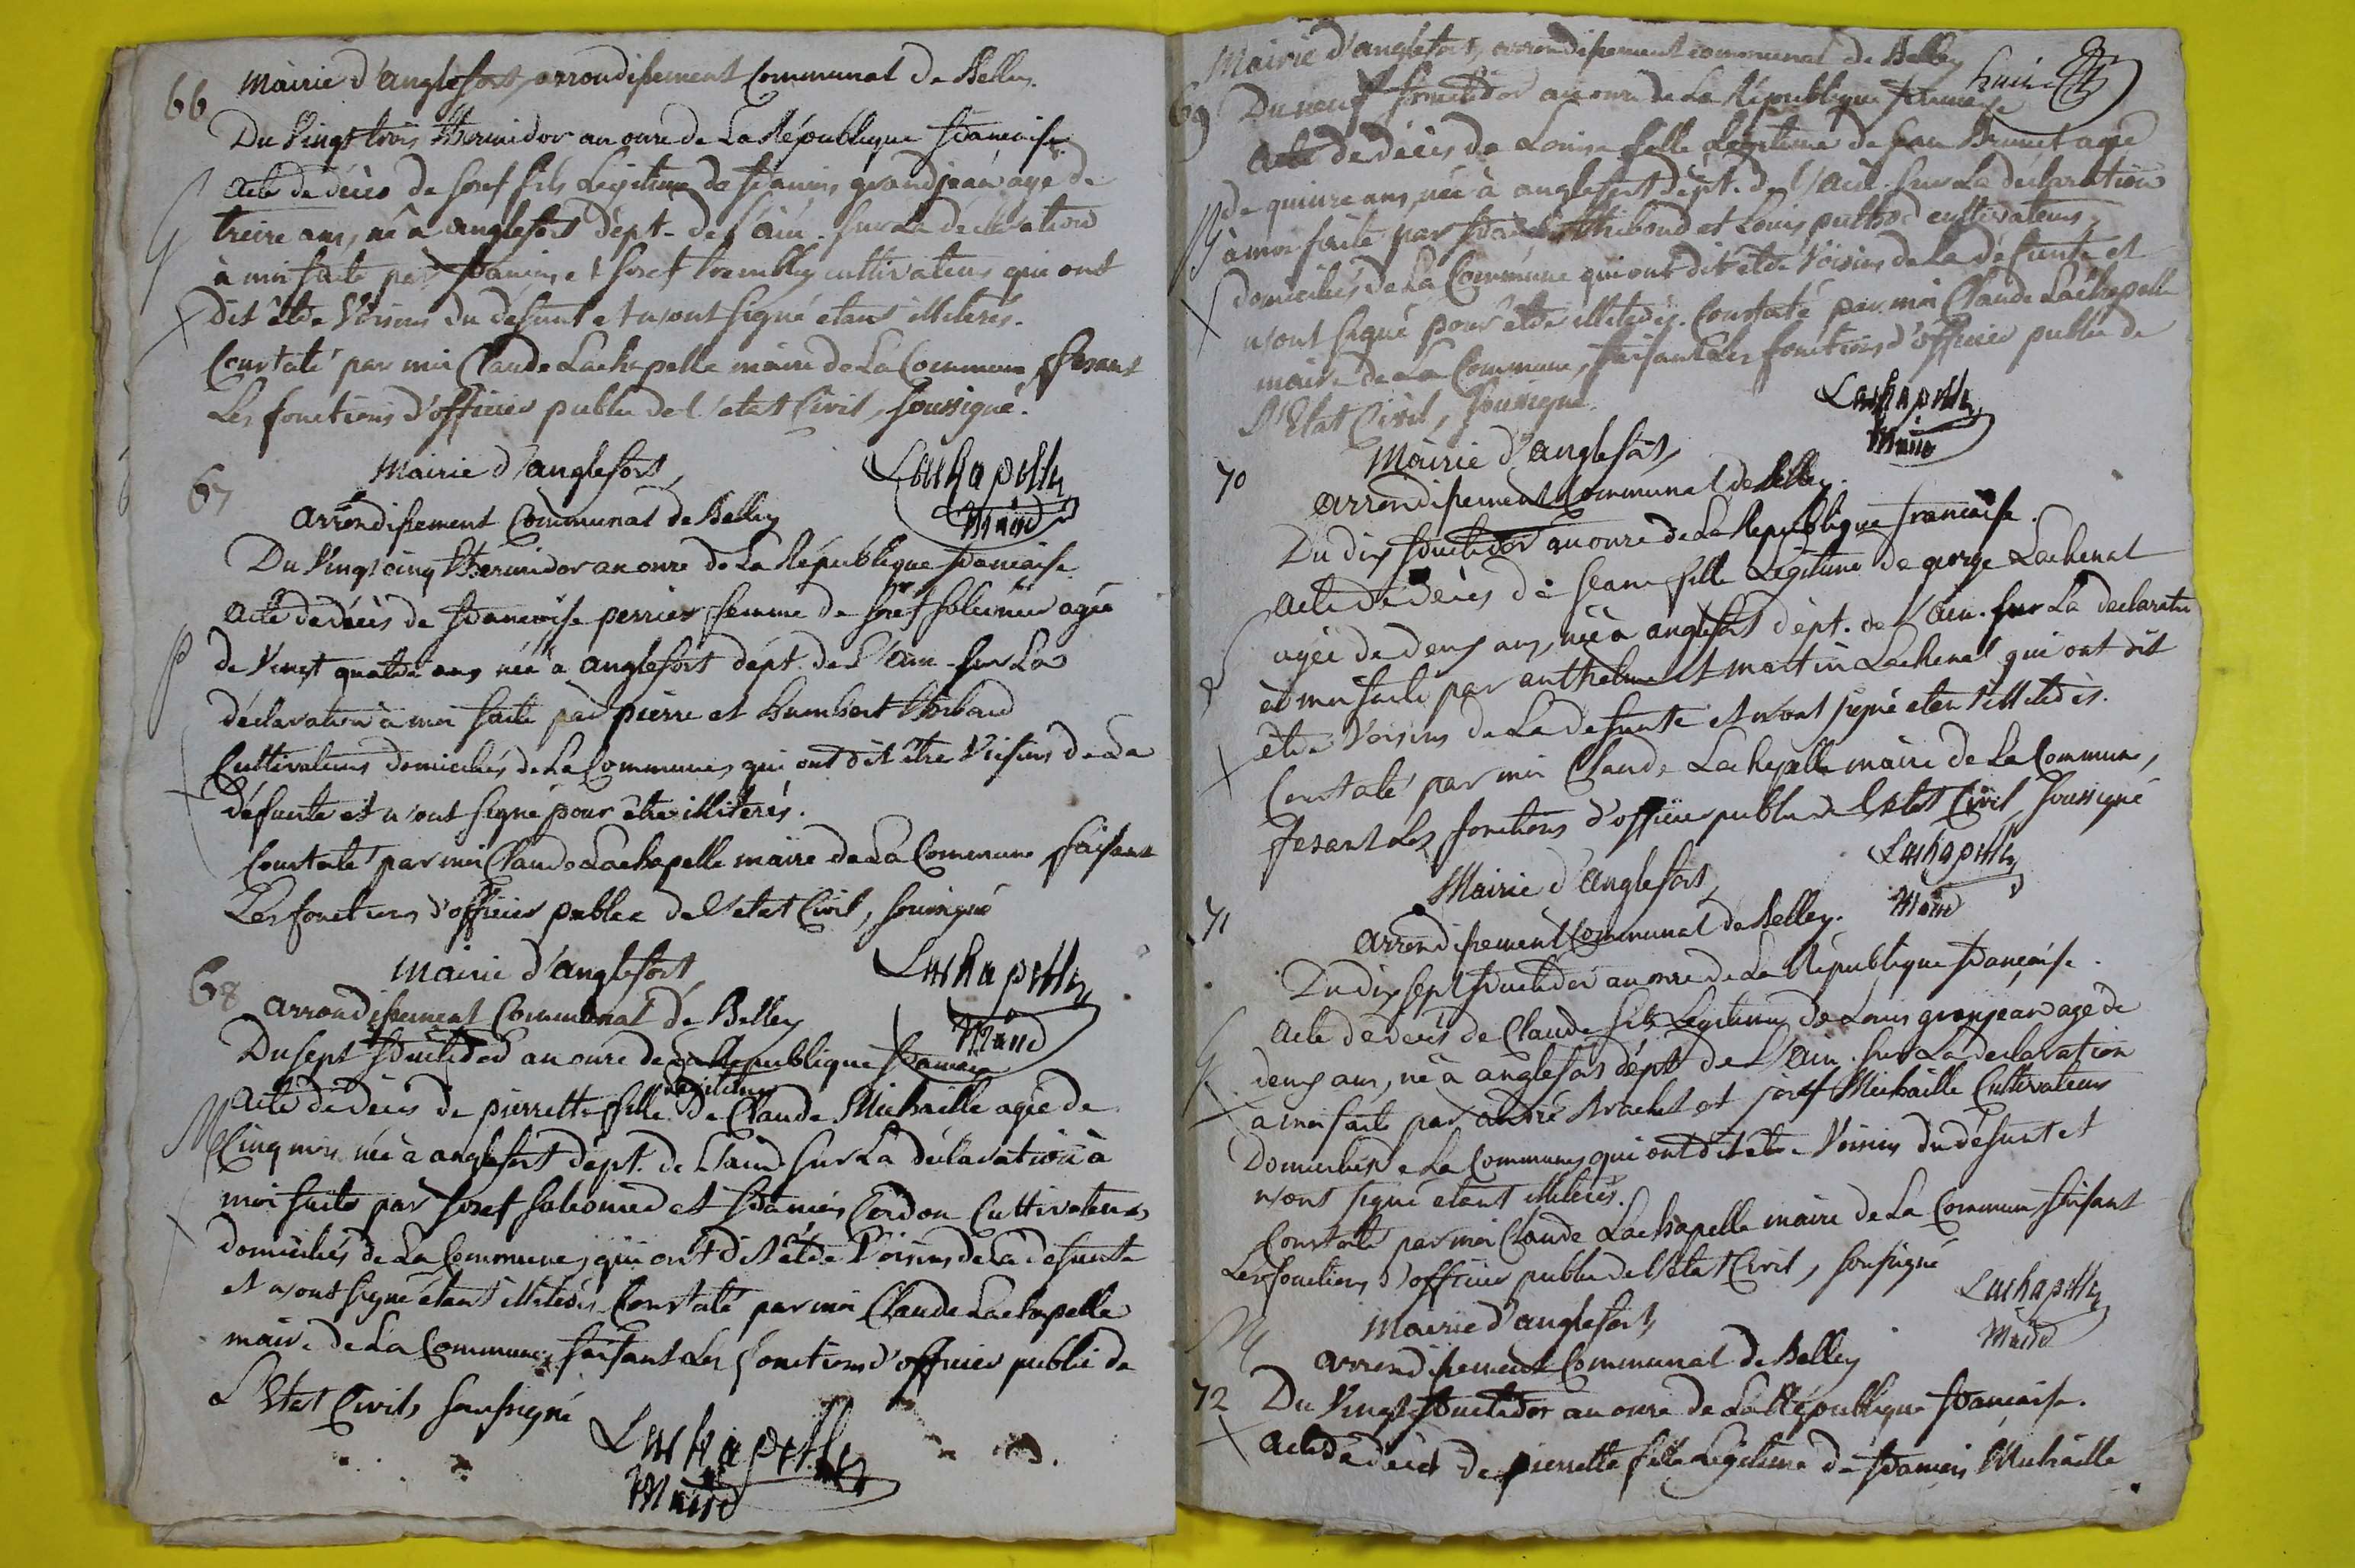 66 Mairie d'anglefort, arrondissement Communal de Belley.
Du Vingt trois thermidor an onze de La République francaise.
Acte de décès de Josef fils Légitime de francois grandjean agé de
treize ans, né à anglefort dépt. de l'ain. sur La déclaration
à moi faite par francois et Josef trembley cultivateurs qui ont
dit être Voisins du défunt et n'ont signé étant illiterés.
Constaté par moi Claude Lachapelle maire de La Commune, fesant
Les fonctions d'officier public de l'etat Civil, soussigné.
67 Mairie d'anglefort, Lachapelle
arrondissement Communal de Belley Maire
Du Vingt cinq thermidor an onze de La République francaise.
Acte de décès de francoise perrier femme de Josef agée
de Vingt quatre ans née à anglefort dépt. de L'ain sur La
déclaration à moi faite par pierre et humbert
Cultivateurs domiciliés de La Commune, qui ont dit être Voisins de La
défunte et n'ont signé pour être illiterés.
Constaté par moi Claude Lachapelle maire de La Commune faisant
Les fonctions d'officier public de l'etat Civil, soussigné
68 Mairie d'anglefort Lachapelle
arrondissement Communal de Belley Maire
Du sept fructidor an onze de La République francaise
légitime
Acte de décès de pierrette fille de Claude Michaille agée de
Cinq mois née à anglefort dépt. de L'ain sur La déclaration à
moi faite par Josef et francois Cordon Cultivateurs
domiciliés de La Commune, qui ont dit être Voisins de La defunte
et n'ont signé étant illiterés. Constaté par moi Claude Lachapelle
maire de La Commune, faisant Les fonctions d'officier public de
L'Etat Civil, soussigné
Lachapelle
Maire
Mairie d'anglefort, arrondissement communal de Belley huit
69 Du neuf fructidor an onze de La République francaise
Acte de décès de Louise fille Légitime de Jean Brunet agée
de quinze ans, née à anglefort dépt. de l'ain. sur La déclaration
à moi faite par et Louis cultivateurs,
domiciliés de La Commune qui ont dit etre Voisins de La défunte et
n'ont signé pour etre illiterés. Constaté par moi Claude Lachapelle
maire de La Commune, faisant Les fonctions d'officier public de
l'Etat Civil, soussigné. Lachapelle
70 Mairie d'anglefort, Maire
arrondissement Communal de Belley.
Du dix fructidor an onze de La République francaise.
Acte de décès de Jeanne fille Légitime de george Lachenal
agée de deux ans, née à anglefort dépt. de l'ain. sur La declaration
à moi faite par anthelme et martin Lachenal qui ont dit
être Voisins de La defunte et n'ont signé etant illiterés.
Constaté par moi Claude Lachapelle maire de La Commune,
fesant Les fonctions d'officier public de l'etat Civil, soussigné
Mairie d'anglefort, Lachapelle
71 arrondissement Communal de Belley. Maire
Du dix sept fructidor an onze de La République française.
Acte de décès de Claude fils Légitime de Louis granjean agé de
deux ans, né à anglefort dépt de L'ain. sur La declaration
a moi faite par andré Brachet et Josef Michaille Cultivateurs
Domiciliés de La Commune, qui ont dit etre Voisins du défunt et
n'ont signé etant illiterés.
Constaté par moi Claude Lachapelle maire de La Commune, faisant
Les fonctions d'officier public de l'etat Civil, soussigné
Mairie d'anglefort, Lachapelle
arrondissement Communal de Belley Maire
72 Du Vingt fructidor an onze de La République francaise.
Acte de décès de pierrette fille Légitime de francois Michaille